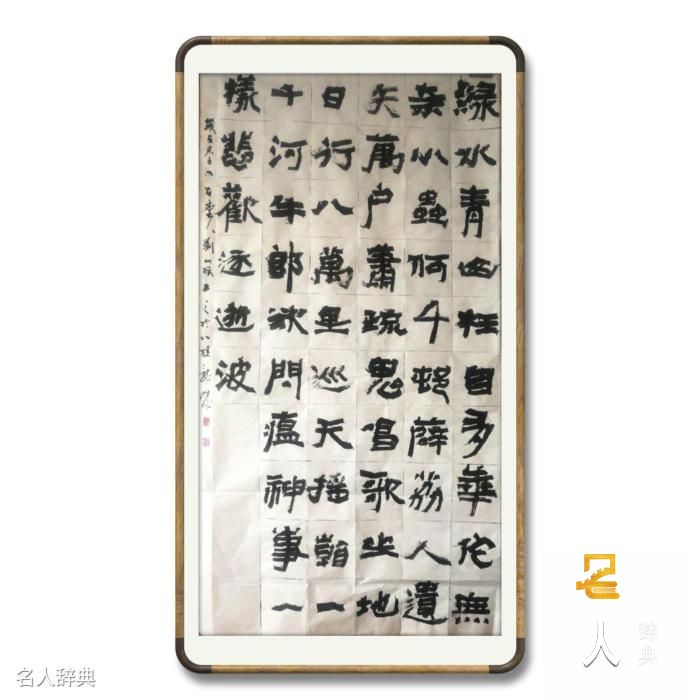 緑水青山枉自多華佗無
柰小蟲何千邨薜荔人遺
矢萬户蕭疏鬼唱歌坐地
日行八萬里巡天摇一
千河牛郎欲問瘟神事一
樣悲歡逐逝波
歲在
劉
名人辞典
名人辞典